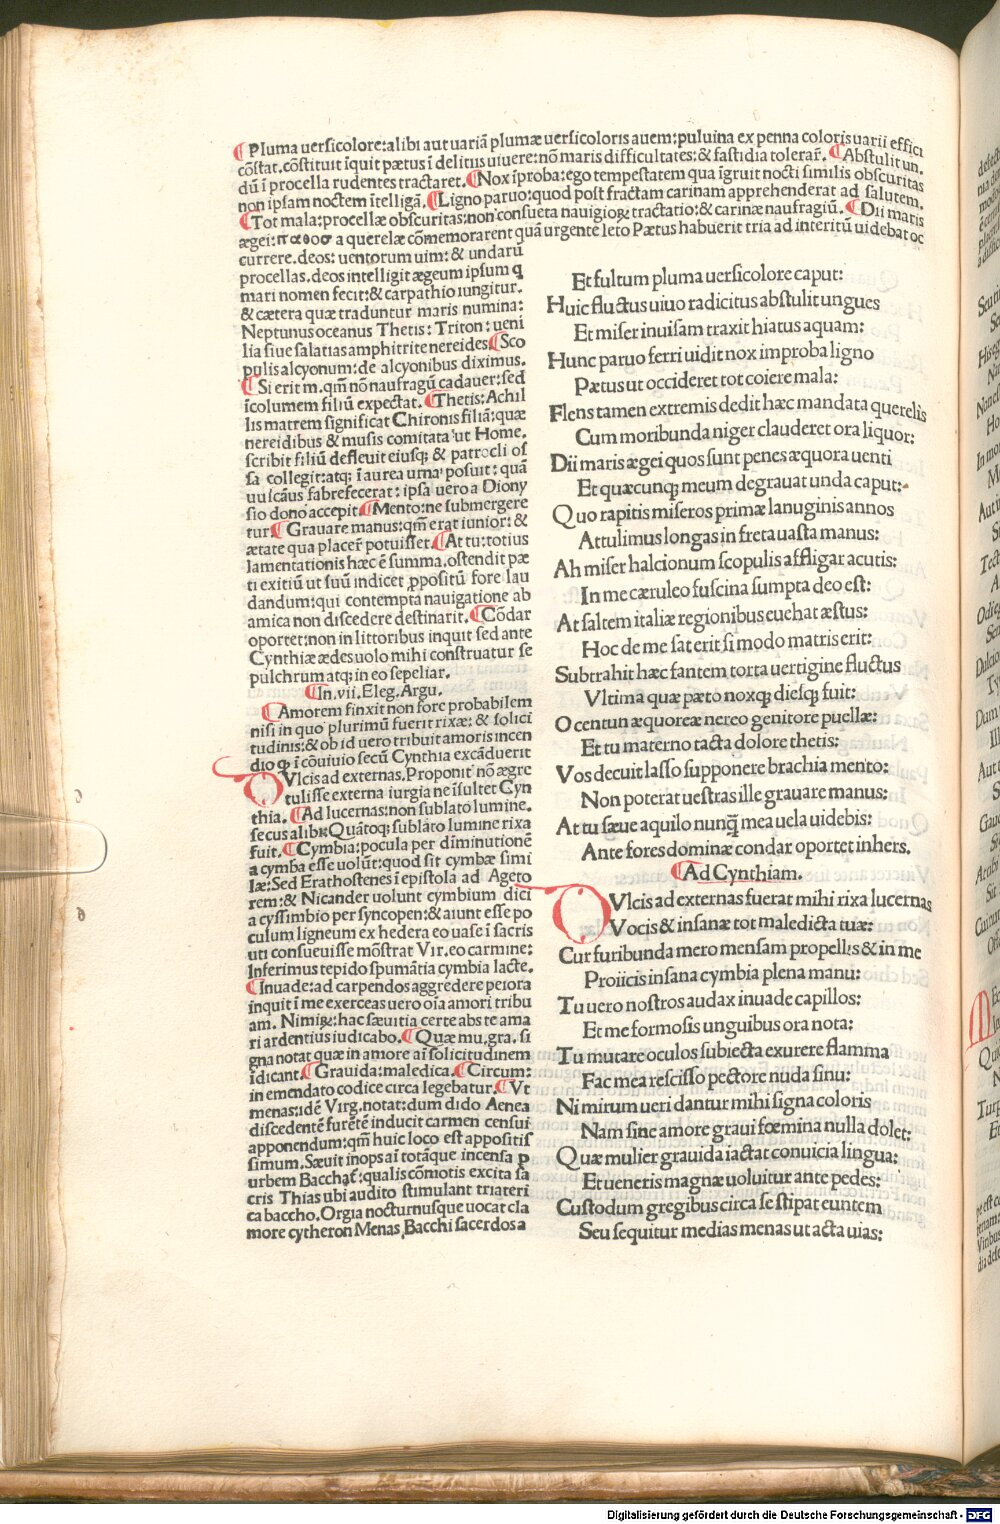 ¶Pluma uersicolore:alibi aut uariā plumæ uersicoloris auem:puluina ex penna coloris uarii effici
cōstat.cōstituit īquit pætus ī delitiis uiuere:nō maris difficultates:& fastidia tolerar̄.¶Abstulit un.
dū ī procella rudentes tractaret.¶Nox īproba:ego tempestatem qua īgruit nocti similis obscuritas
non ipsam noctem ītelligā.¶Ligno paruo:quod post fractam carinam apprehenderat ad salutem.
¶Tot mala:procellæ obscuritas:non consueta nauigioꝝ tractatio:& carinæ naufragiū.¶Dii maris
ægei:παθοσ a querelæ cōmemorarent quā urgente leto Pætus habuerit tria ad interitū uidebat oc
currere.deos:uentorum uim:& undarū
procellas.deos intelligit ægeum ipsum q
mari nomen fecit:& carpathio iungitur.
& cætera quæ traduntur maris numina:
Neptunus oceanus Thetis:Triton:ueni
lia siue salatias amphitrite nereides.¶Sco
pulis alcyonum:de alcyonibus diximus.
¶Si erit m.qm̄ nō naufragū cadauer:sed
īcolumem filiū expectat.¶Thetis:Achil
lis matrem significat Chironis filiā:quæ
nereidibus & musis comitata ut Home.
scribit filiū defleuit eiusq; & patrocli os
sa collegit:atq; ī aurea urna posuit:quā
uulcāus fabrefecerat:ipsa uero a Diony
sio dono accepit.¶Mento:ne submergere
tur.¶Grauare manus:qm̄ erat iunior:&
ætate qua placer̄ potuisset.¶At tu:totius
lamentationis hæc ē summa.ostendit pæ
ti exitiū ut suū indicet ꝓpositū fore lau
dandum:qui contempta nauigatione ab
amica non discedere destinarit.¶Cōdar
oportet:non in littoribus inquit sed ante
Cynthiæ ædes uolo mihi construatur se
pulchrum atq; in eo sepeliar.
¶In.vii.Eleg.Argu.
¶Amorem finxit non fore probabilem
nisi in quo plurimū fuerit rixæ:& solici
tudinis:& ob id uero tribuit amoris incen
dio ꝙ ī cōuiuio secū Cynthia excāduerit
DVlcis ad externas.Proponit nō ægre
tulisse externa iurgia ne īsultet Cyn
thia.¶Ad lucernas:non sublato lumine.
secus alibi:Quātoq; sublato lumine rixa
fuit.¶Cymbia:pocula per diminutionē
a cymba esse uolūt:quod sit cymbæ simi
læ:Sed Erathostenes ī epistola ad Ageto
rem:& Nicander uolunt cymbium dici
a cyssimbio per syncopen:& aiunt esse po
culum ligneum ex hedera eo uase ī sacris
uti consueuisse mōstrat Vir.eo carmine:
Inferimus tepido spumātia cymbia lacte.
¶Inuade:ad carpendos aggredere peiora
inquit ī me exerceas uero oīa amori tribu
am. Nimiꝝ:hac sæuitia certe abs te ama
ri ardentius iudicabo.¶Quæ mu.gra.si
gna notat quæ in amore aī solicitudinem
īdicant.¶Grauida:maledica.¶Circum:
in emendato codice circa legebatur.¶Vt
menas:idē Virg.notat:dum dido Aenea
discedentē furētē inducit carmen censui
apponendum:qm̄ huic loco est appositis
simum.Sæuit inops aī totāque incensa p
urbem Bacchat̄:qualis cōmotis excita sa
cris Thias ubi audito stimulant triateri
ca baccho.Orgia nocturnusque uocat cla
more cytheron Menas Bacchi sacerdos a
Et fultum pluma uersicolore caput:
Huic fluctus uiuo radicitus abstulit ungues
Et miser inuisam traxit hiatus aquam:
Hunc paruo ferri uidit nox improba ligno
Pætus ut occideret tot coiere mala:
Flens tamen extremis dedit hæc mandata querelis
Cum moribunda niger clauderet ora liquor:
Dii maris ægei quos sunt penes æquora uenti
Et quæcunq; meum degrauat unda caput:
Quo rapitis miseros primæ lanuginis annos
Attulimus longas in freta uasta manus:
Ah miser halcionum scopulis affligar acutis:
In me cæruleo fuscina sumpta deo est:
At saltem italiæ regionibus euehat æstus:
Hoc de me sat erit si modo matris erit:
Subtrahit hæc fantem torta uertigine fluctus
Vltima quæ pæto noxq; diesq; fuit:
O centum æquoreæ nereo genitore puellæ:
Et tu materno tacta dolore thetis:
Vos decuit lasso supponere brachia mento:
Non poterat uestras ille grauare manus:
At tu sæue aquilo nunq̄ mea uela uidebis:
Ante fores dominæ condar oportet inhers.
¶Ad Cynthiam.
DVlcis ad externas fuerat mihi rixa lucernas
Vocis & insanæ tot maledicta tuæ:
Cur furibunda mero mensam propellis & in me
Proiicis insana cymbia plena manu:
Tu uero nostros audax inuade capillos:
Et me formosis unguibus ora nota:
Tu mutare oculos subiecta exurere flamma
Fac mea rescisso pectore nuda sinu:
Ni mirum ueri dantur mihi signa coloris
Nam sine amore graui fœmina nulla dolet:
Quæ mulier grauida iactat conuicia lingua:
Et ueneris magnæ uoluitur ante pedes:
Custodum gregibus circa se stipat euntem
Seu sequitur medias menas ut acta uias:
Digitalisierung gefördert durch die Deutsche Forschungsgemeinschaft - DFG